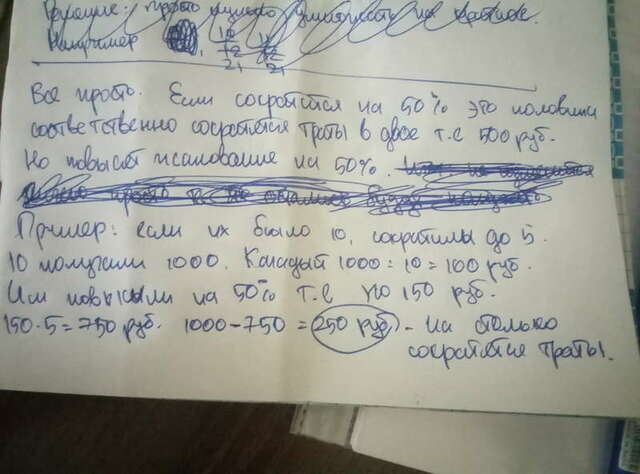 просто нужно умножить на
Например 10 11
12 12
21 21
Все просто. Если сократится на 50% это половина
соответственно сократятся траты в двое т.е 500 руб.
Но повысят жалование на 50%.
Пример: если их было 10, сократилы до 5.
10 получили 1000. Каждый 1000 : 10 = 100 руб.
Им повысили на 50% т.е по 150 руб.
150 · 5 = 750 руб. 1000 - 750 = 250 руб - на столько
сократятся траты.